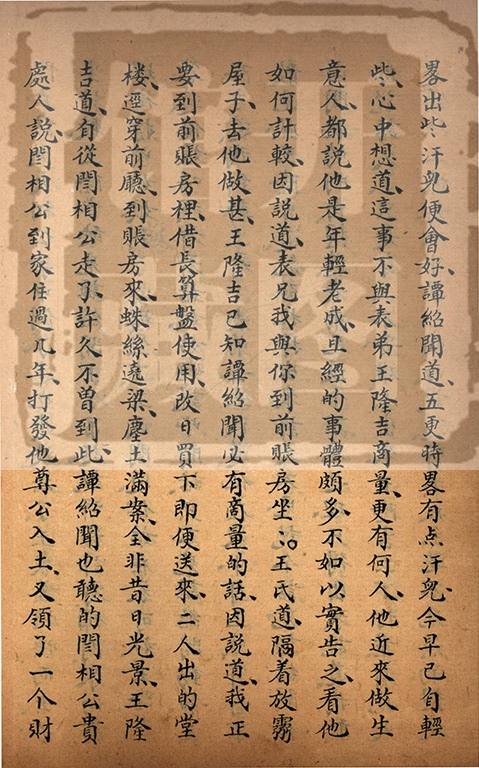 畧出些汗兒便會好譚紹聞道五更時畧有点汗兒今早已自輕
些心中想道這事不與表弟王隆吉商量更有何人他近來做生
意人都說他是年輕老成且經的事體頗多不如以實告之看他
如何計較因説道表兄我與你到前賬房坐〻王氏道隔着放霧
屋子去他做甚王隆吉已知譚紹聞必有商量的話因説道我正
要到前賬房裡借長算盤使用改日買下即便送來二人出的堂
楼逕穿前廳到賬房來蛛絲遶梁塵土滿案全非昔日光景王隆
吉道自從閆相公走了許久不曽到此譚紹聞也聽的閆相公貴
處人説閆相公到家住過几年打發他尊公入土又領了一个財